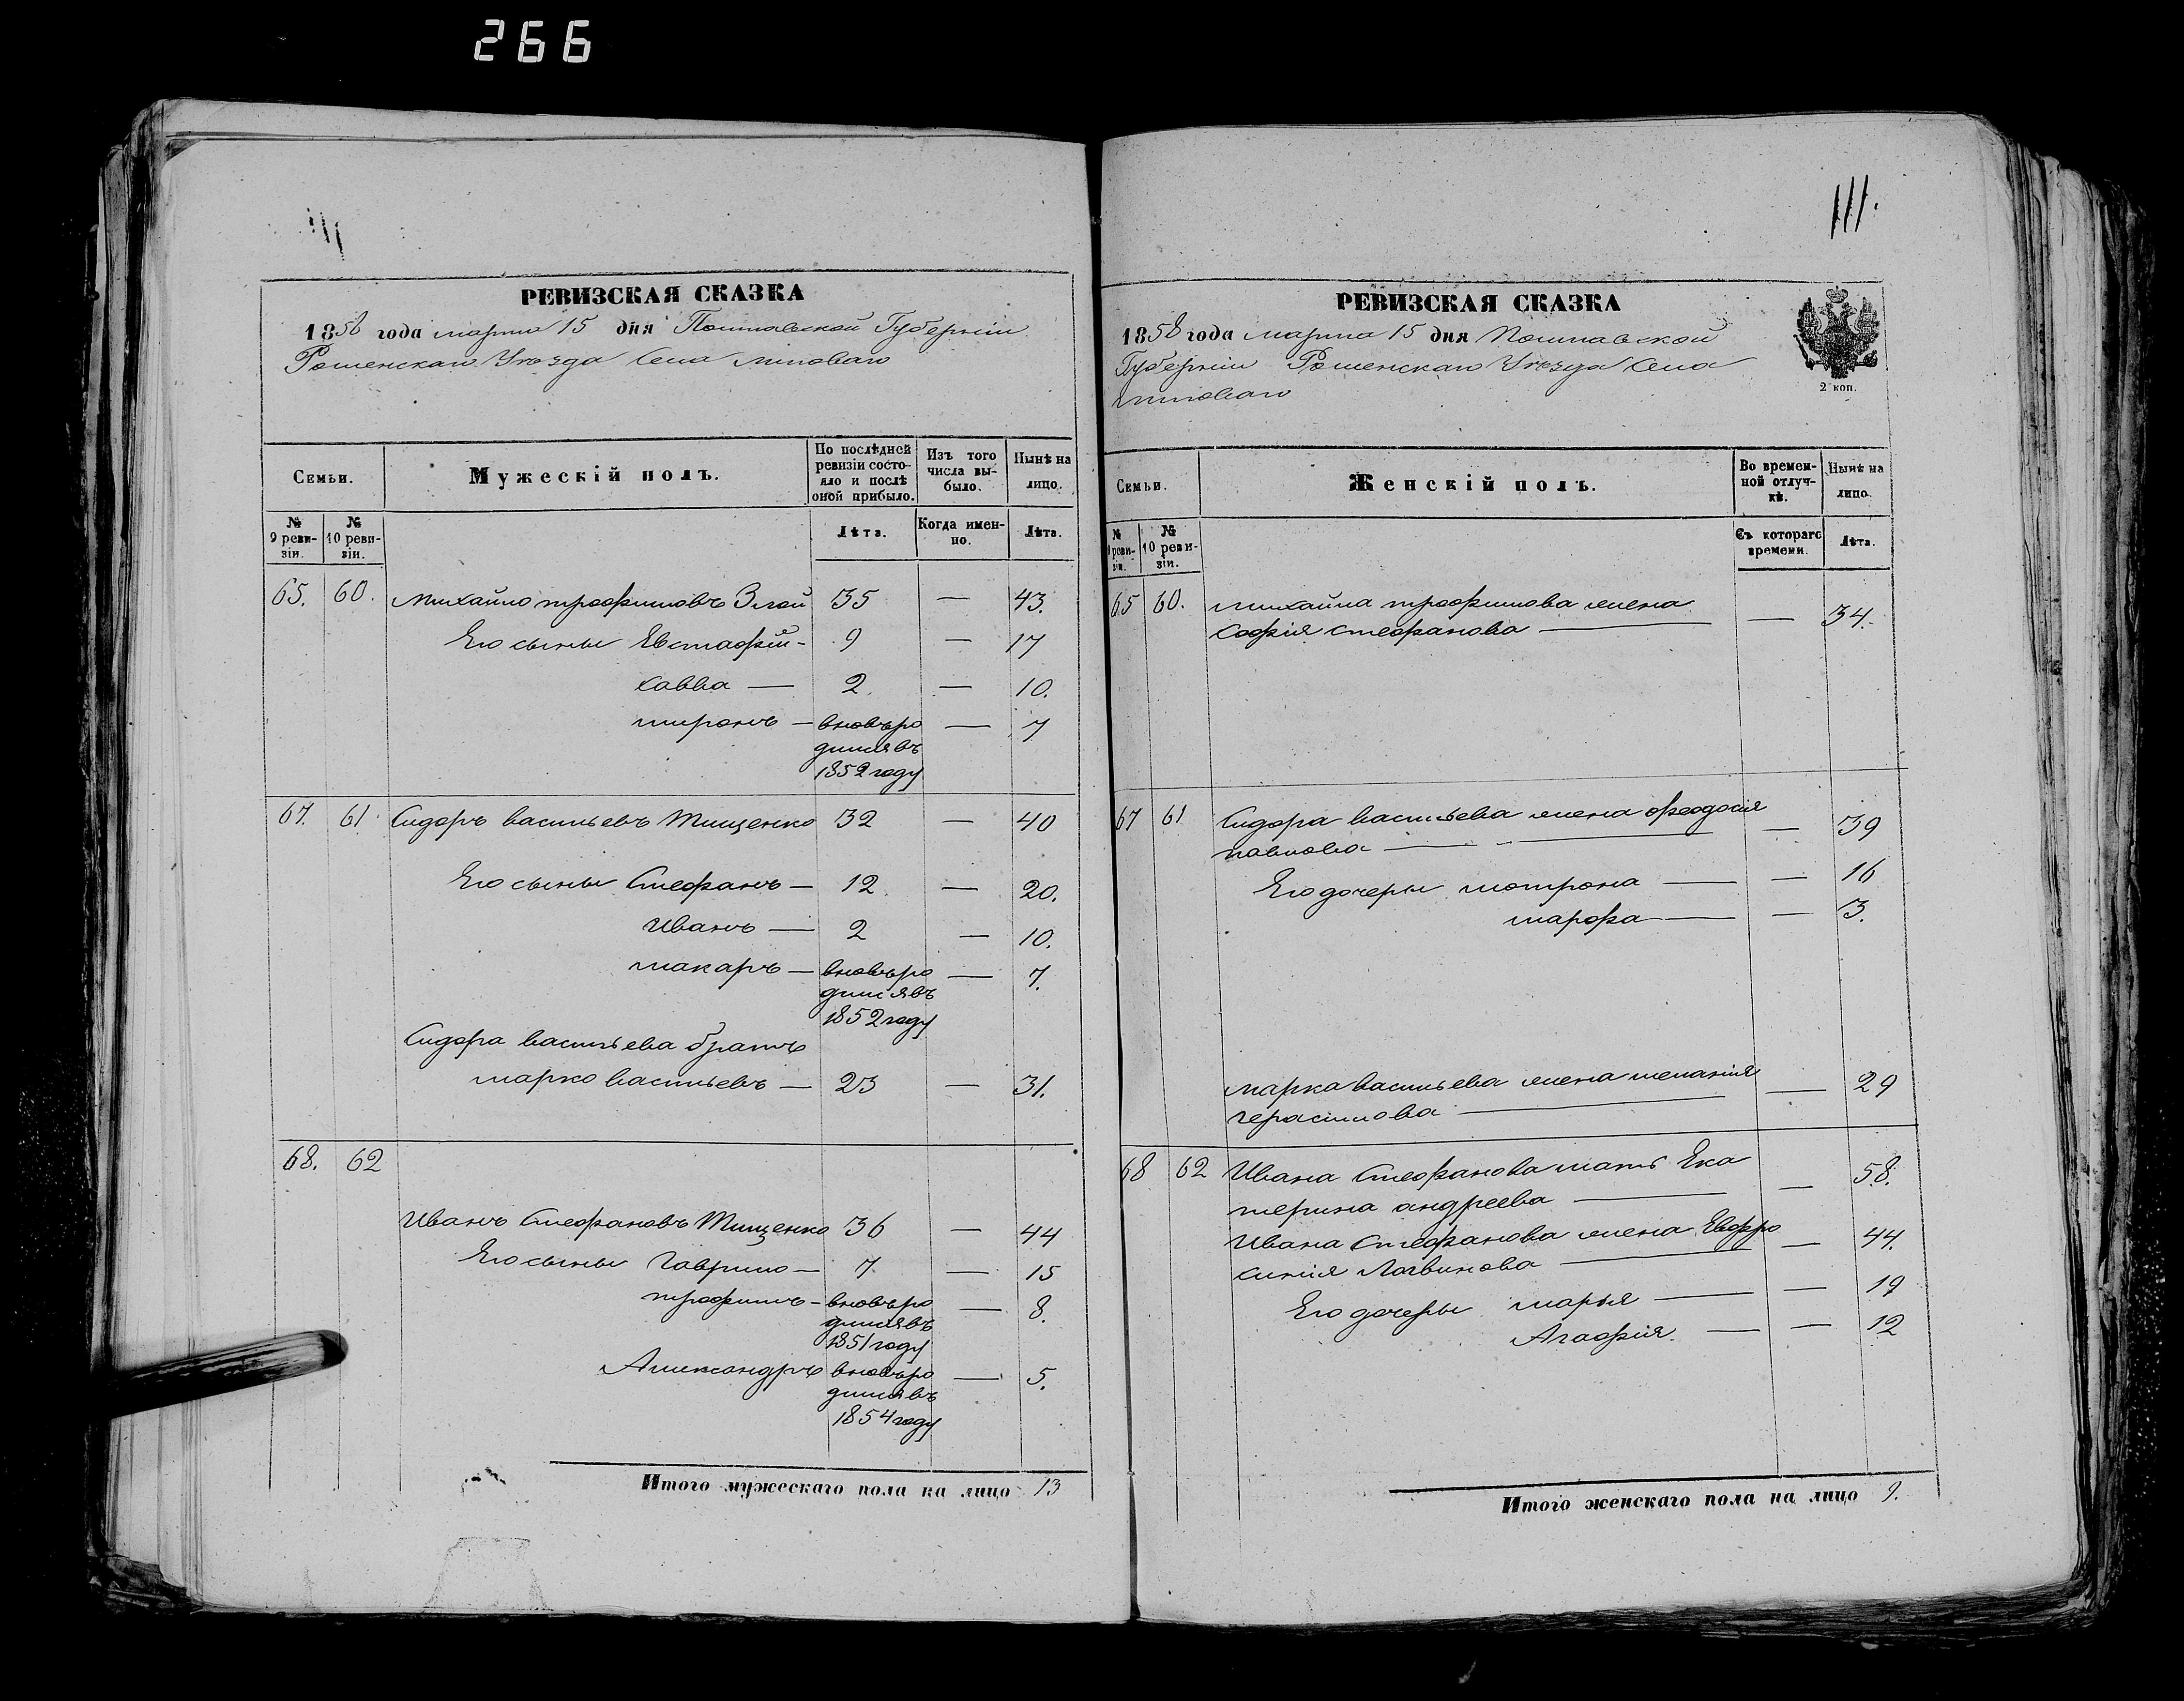 266
111.
РЕВИЗСКАЯ СКАЗКА
1858 года марта 15 дня Полтавской Губерніи
Роменскаго Уѣзда Села Липоваго
Семьи.
Мужескій полъ.
По послѣдней ревизіи состояло и послѣ оной прибыло.
Изъ того числа выбыло.
Нынѣ на лицо.
№ 9 ревизіи.
№ 10 ревизіи.
Лѣта.
Когда именно.
Лѣта.
65. 60. Михайло трофимовъ Злой 35 — 43.
Его сыны Евстафій - 9 — 17
Савва — 2. — 10.
миронъ — вновь ро — 7
дился въ
1852 году
67. 61 Сидоръ васильевъ Тищенко 32 — 40
Его сыны Стефанъ — 12. — 20.
Иванъ — 2 — 10.
макаръ — вновь ро — 7.
дился въ
1852 году
Сидора васильева братъ
марко васильевъ — 23 — 31.
68. 62
Иванъ Стефановъ Тищенко 36 — 44
Его сыны Гаврило — 7 — 15
трофимъ - вновь ро — 8.
дился въ
1851 году
Александръ вновь ро — 5.
дился въ
1854 году
Итого мужескаго пола на лицо 13
111.
РЕВИЗСКАЯ СКАЗКА
1858 года марта 15 дня Полтавской
Губерніи Роменскаго Уѣзда Села
Липоваго
2 коп.
Семьи.
Женскій полъ.
Во временной отлучкѣ.
Нынѣ на лицо.
№ 9 ревизіи.
№ 10 ревизіи.
Съ котораго времени.
Лѣта.
65 60. михайла трофимова жена
Софія стефанова — — 34.
67 61 Сидора васильева жена феодосія
павлова — — 39
Его дочеры мотрона — — 16
марфа — — 3.
марка васильева жена меланія
герасимова — — 29
68 62 Ивана Стефанова мать Ека
терина андреева — — 58.
Ивана Стефанова жена Евфро
синія Логвинова — — 44.
Его дочеры марья — — 19
Агафія. — — 12
Итого женскаго пола на лицо 9.